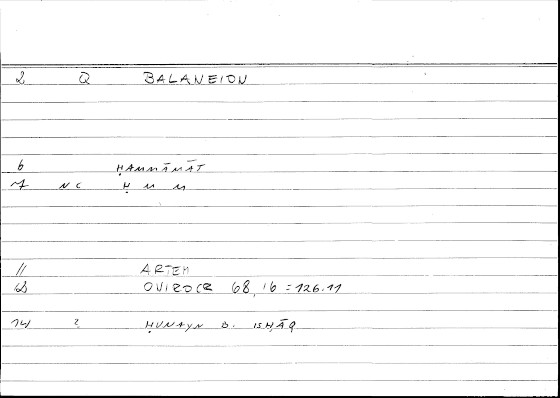 2 Q BALANEION
6 ḤAMMĀMĀT
7 NC Ḥ M M
11 ARTEM
12 OVIROCR 68,16=126.11
14 2 ḤUNAYN B. ISḤĀQ